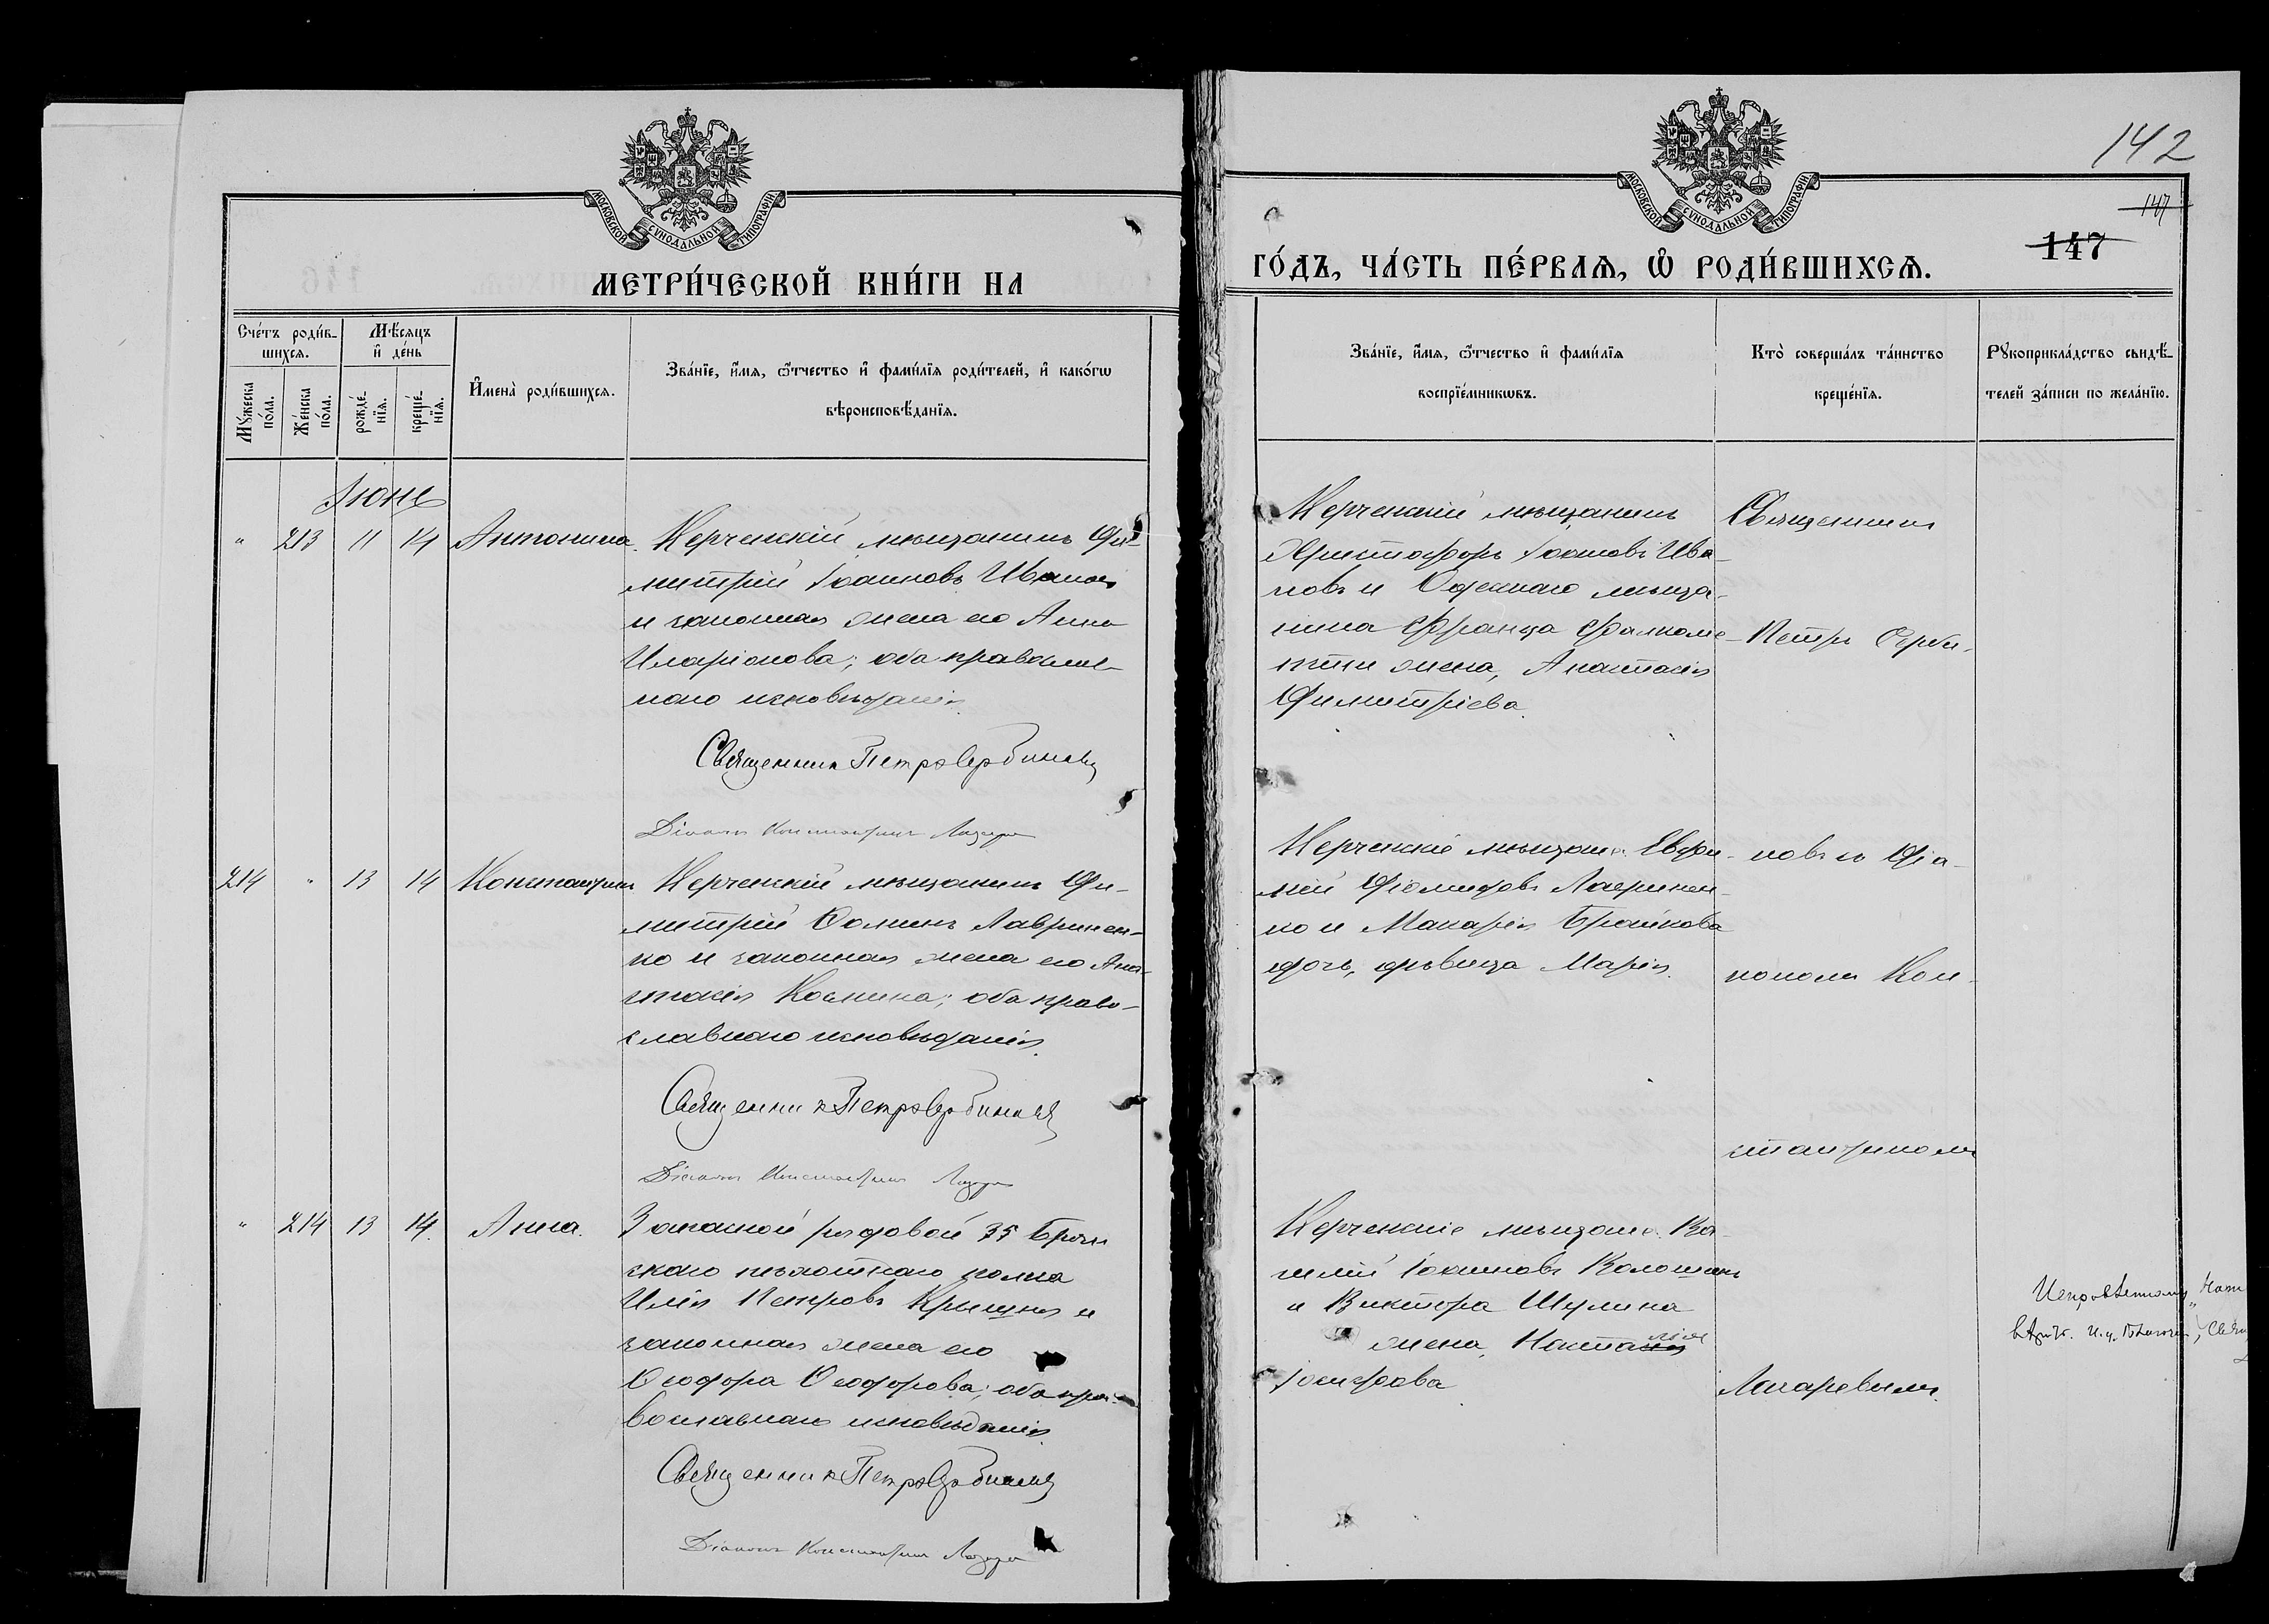 МОСКОВСКОЙ СѴНОДАЛЬНОЙ ТИПОГРАФІИ.
МЕТРИ́ЧЕСКОЙ КНИ́ГИ НА
Сче́тъ роди́в-
шихсѧ.
Мѣ́сѧцъ
и҆ де́нь
Мꙋ́жеска по́ла.
Же́нска по́ла.
рожде́нїѧ.
креще́нїѧ.
И҆мена̀ роди́вшихсѧ.
Зва́нїе, и҆́мѧ, ѻ҆́тчество и҆ фами́лїѧ роди́телей, и҆ како́гѡ
вѣроисповѣ́данїѧ.
Іюнь
" 213 11 14 Антонина. Керченскій мѣщанинъ Ди-
митрій Іоанновъ Ивановъ
и законная жена его Анна
Иларіонова; оба православ-
наго исповѣданія.
Священникъ Петръ Сербиновъ
Діаконъ Константинъ Лазаре
214 " 13 14 Константинъ Керченскій мѣщанинъ Ди-
митрій Ѳоминъ Лавринен-
ко и законная жена его Ана-
стасія Космина; оба право-
славнаго исповѣданія.
Священникъ Петръ Сербиновъ
Діаконъ Константинъ Лазаре
" 214 13 14. Анна. Запасной рядовой 35 Брян
скаго пѣхотнаго полка
Илія Петровъ и
законная жена его
Ѳеодора Ѳеодорова; оба пра-
вославнаго исповѣданія.
Священникъ Петръ Сербиновъ
Діаконъ Константинъ Лазаре
142
МОСКОВСКОЙ СѴНОДАЛЬНОЙ ТИПОГРАФІИ.
147
147
ГО́ДЪ, ЧА́СТЬ ПЕ́РВАѦ, Ѽ РОДИ́ВШИХСѦ.
Зва́нїе, и҆́мѧ, ѻ҆́тчество и҆ фами́лїѧ
воспрїе́мникѡвъ.
Кто̀ соверша́лъ та́инство
креще́нїѧ.
Рꙋкоприкла́дство свидѣ́-
телей за́писи по жела́нїю.
Керченскій мѣщанинъ
Христофоръ Іоанновъ Ива-
новъ и Одесскаго мѣща-
нина Франца
жена, Анастасія
Димитріева.
Священникъ
Петръ Серби-
Керченскіе мѣщане: Евфи-
мій Діомидовъ Лавринен-
ко и Макарія Брайкова
дочь, дѣвица Марія.
новъ съ Діа-
кономъ Кон-
стантиномъ
Керченскіе мѣщане: Ва-
силій Іоанновъ Волошинъ
и Виктора Шулика
жена,
Іосифова
Лазаревымъ.